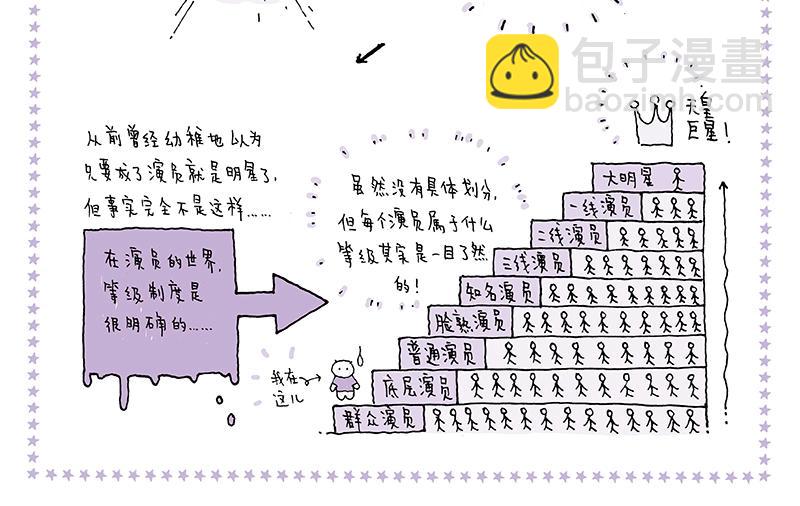 包子漫畫
baozimh.com
天皇
巨星！
从前曾经幼稚地以为
只要成了演员就是明星了，
但事实完全不是这样……
在演员的世界，
等级制度是
很明确的……
虽然没有具体划分，
但每个演员属于什么
等级其实是一目了然
的！
大明星
一线演员
二线演员
三线演员
知名演员
脸熟演员
普通演员
我在
这儿
底层演员
群众演员